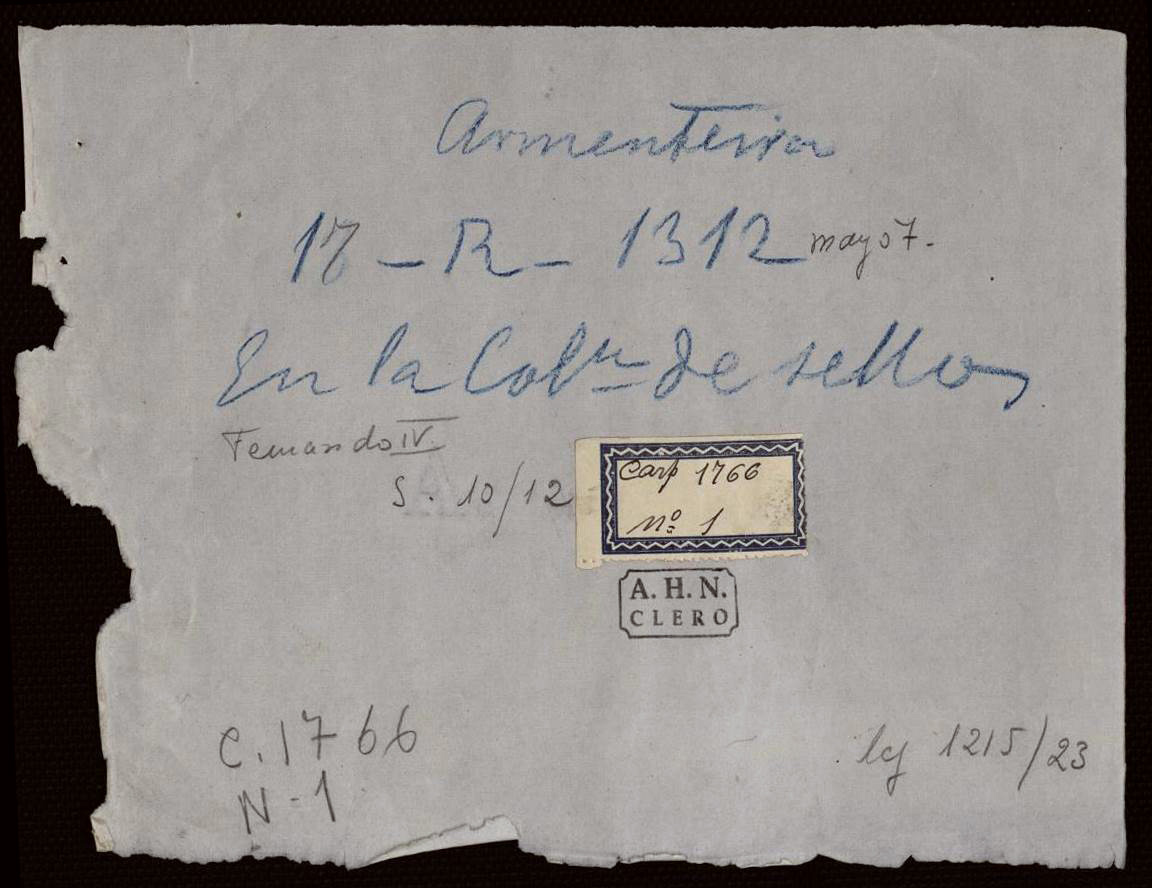 Armenteira
17 - R - 1312 mayo 7.
En la Colⁿ de sellos
Fernando IV
S. 10/12
Carp 1766
Nº 1
A. H. N.
CLERO
C. 1766
N - 1
leg 1215/23